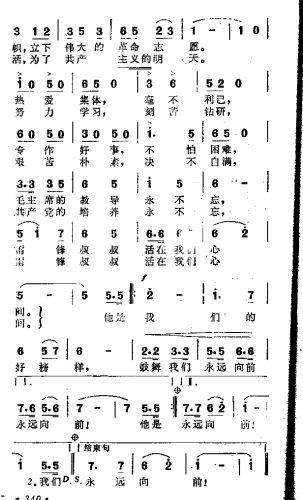 3 1 2 | 3 5· 3 5 | 6 5 2 3 | 1 - | 1 0 |
帜,立下 伟大的 革命志 愿。
活,为了 共产 主义的明 天。
1 0 5 0 | 6 5 0 | 3 6 | 5 2 0 |
热 爱 集体, 毫 不 利己,
努 力 学习, 刻 苦 钻研,
6 0 5 0 | 3 0 5 0 | 1· 5 | 6 5 0 |
专 作 好 事, 不 怕 困难,
艰 苦 朴 素, 决 不 自满,
3·3 3 5 | 6 5 1 3 | 1 5 | 6 - |
毛主 席的 教 导 永 不 忘,
共产 党的 培 养 永 不 忘,
5 1 7 | 6 5 | 6·6 6 5 | 6 2 |
雷 锋 叔叔 活在 我们 心
雷 锋 叔叔 活在 我们 心
f
5 - | 5 5·5 | 2 - | 1· 7 |
间。 他是 我 们 的
间。
6 5 7 | 6 - | 2·2 3·3 | 5·5 6 2 |
好 榜 样, 鼓舞 我们 永远 向前
I. II.
7·6 5·6 | 7 - | 7 5·5 | 7·7 6 2 | 1 - |
永远 向 前! 他是 永远向 前!
结束句
1 5·5 | 7· 7 | 6 2 | 1 - | 1 0 |
2.我们 D.S. 永 远 向 前!
• 340 •